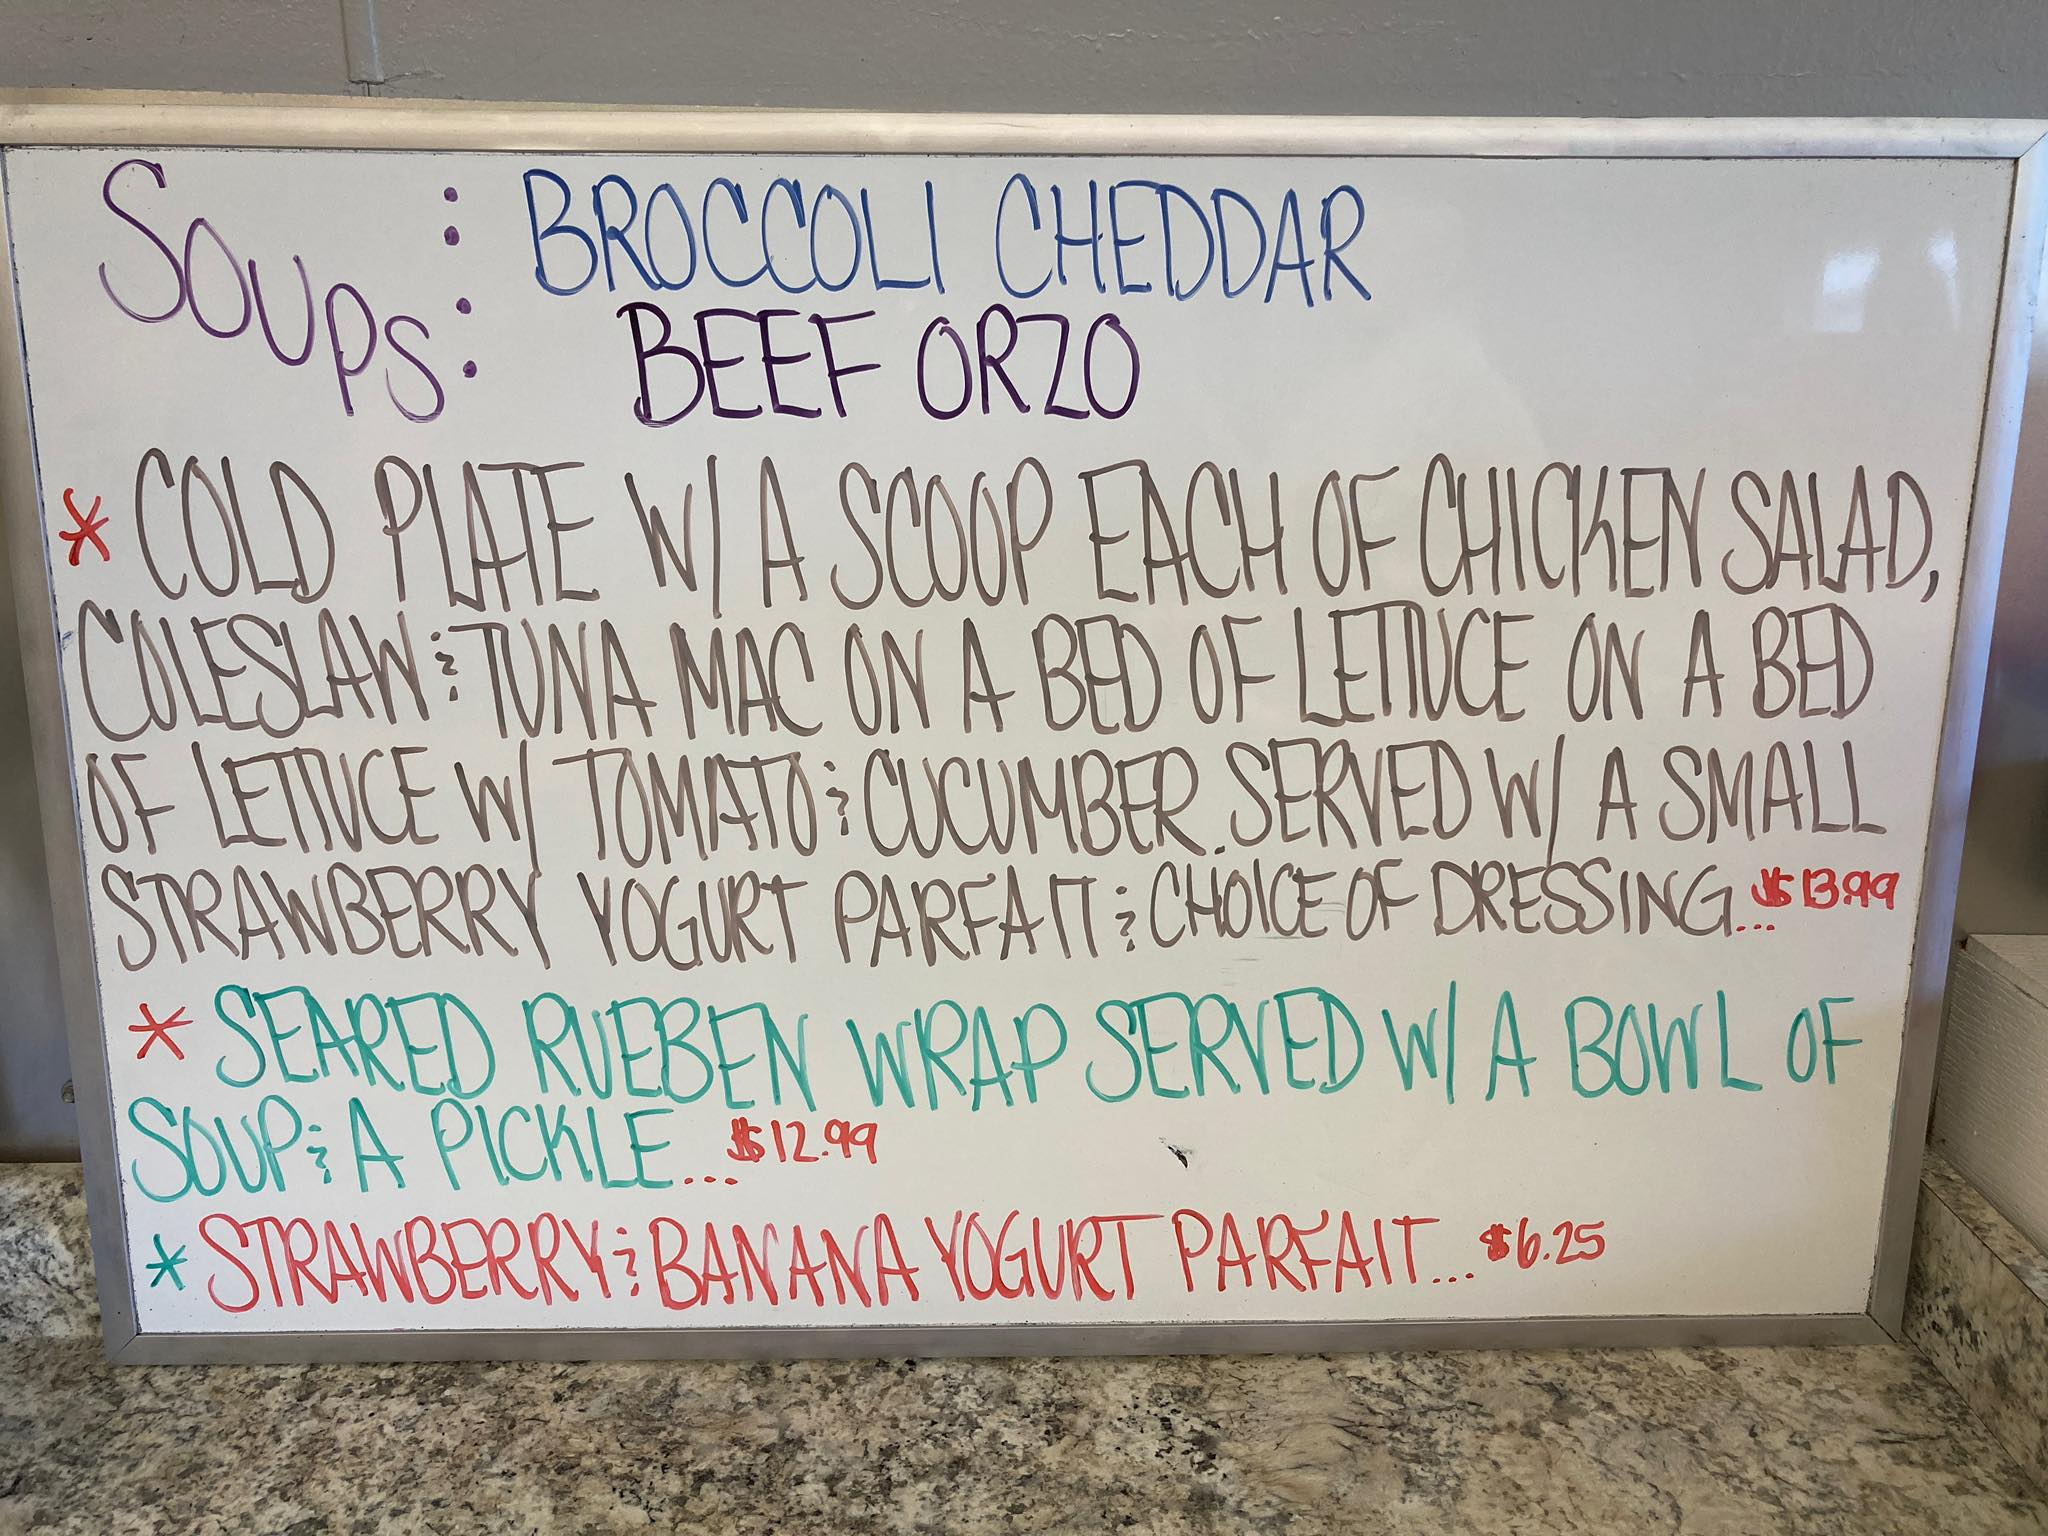 SOUPS: : BROCCOLI CHEDDAR
BEEF ORZO
* COLD PLATE W/ A SCOOP EACH OF CHICKEN SALAD,
COLESLAW & TUNA MAC ON A BED OF LETTUCE ON A BED
OF LETTUCE W/ TOMATO & CUCUMBER. SERVED W/ A SMALL
STRAWBERRY YOGURT PARFAIT & CHOICE OF DRESSING... $13.99
* SEARED RUEBEN WRAP SERVED W/ A BOWL OF
SOUP & A PICKLE... $12.99
* STRAWBERRY & BANANA YOGURT PARFAIT... $6.25